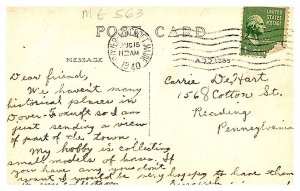 M E 563
POST CARD
DOVER-FOXCROFT, MAINE
AUG 15
11 30 AM
1940
MESSAGE
ADDRESS
Dear friend,
We haven't many
historical places in
Dover-Foxcroft so I am
just sending a view
of part of the town.
My hobby is collecting
small models of horses. If
you have any
want I would be very happy to have them
Carrie DeHart
1568 Cotton St.
Reading
Pennsylvania